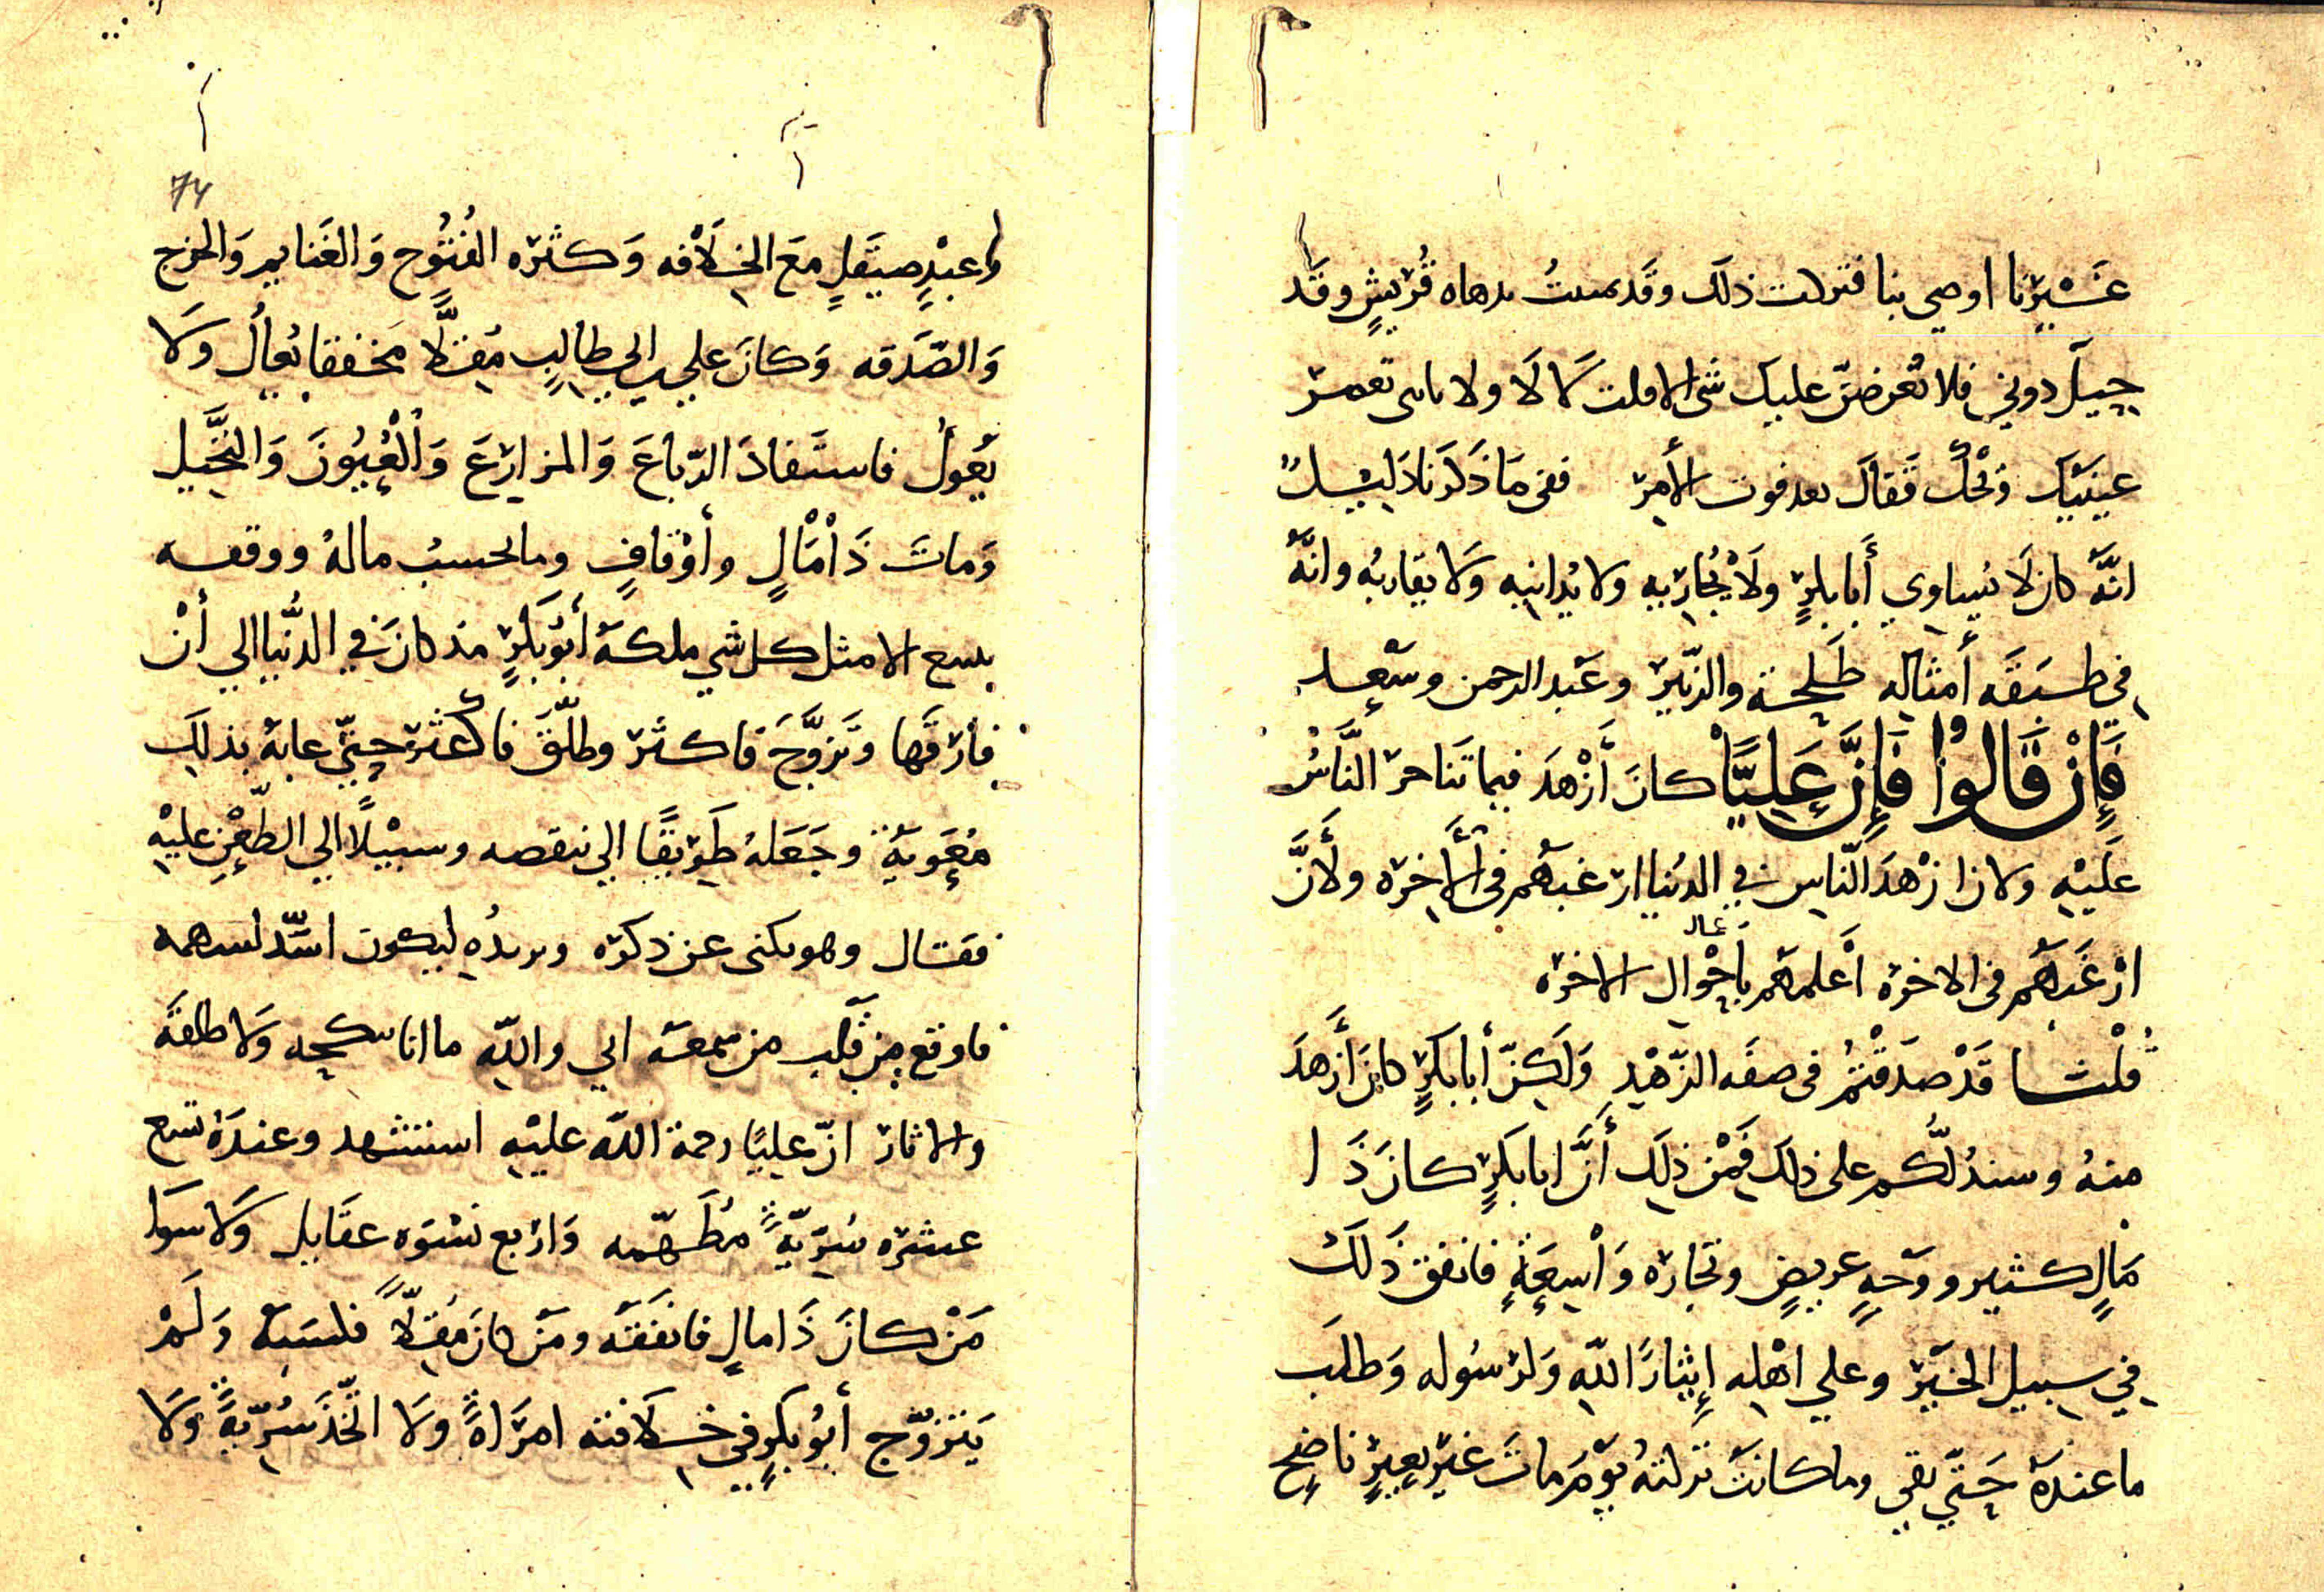 غيرنا اوصي بنا فتركت ذلك وقد مسست بدهاه قريش وقد
حيل دوني فلا تعرضن عليك شي الا قلت كلا لا ولا ياى تعمر
عينيك وتحك فقال بعد فوت الأمر ففى ما ذكرنا دليل
انه كان لا يساوي أبا بكر ولا يجاريه ولا يدانيه ولا يقاربه وانه
في طبقه أمثاله طلحة والزبير وعبد الرحمن وسعد
فإن قالوا فإن عليا كان أزهد فيما تناحر الناس
عليه ولان ازهد الناس في الدنيا ارغبهم فى الأخرة ولأن
ارغبهم فى الاخرة أعلمهم بأحوال الاخرة
عال
قلنا قد صدقتم فى صفه الزهد ولكن أبا بكر كان أزهد
منه وسندلكم على ذلك فمن ذلك أن ابا بكر كان ذا
مال كثير ووجه عريض وتجاره واسعة فانفق ذلك
في سبيل الخير وعلي اهله إيثارا لله ولرسوله وطلب
ما عنده حتي بقي وما كانت تركته يوم مات غير بعير ناضح
74
وعبد صيقل مع الخلافه وكثره الفتوح والغنايم والخرج
والصدقه وكان علي بن ابي طالب مقلا مخفقا يعال ولا
يعول فاستفاد الرباع والمزارع والعيون والنخيل
ومات ذا مال وأوقاف وما نحسب ماله ووقفه
بينبع الا مثل كل شي ملكه أبو بكر مذ كان في الدنيا الي أن
فارقها وتزوج فاكثر وطلق فاكثر حتي عابه بذلك
معوية وجعله طريقا الي تنقصه وسبيلا الي الطعن عليه
فقال وهو يكنى عن ذكره ويريده ليكون اشد لسهمه
فاوقع من قلب من سمعه اني والله ما انا بنكحه ولا طلقه
والاثار ان عليا رحمة الله عليه استشهد وعنده تسع
عشره سرية مطهمه واربع نسوه عقايل ولا سوا
من كان ذا مال فانفقه ومن كان مقلا فكسبه ولم
يتزوج أبو بكر في خلافته امراة ولا اتخذ سرية ولا